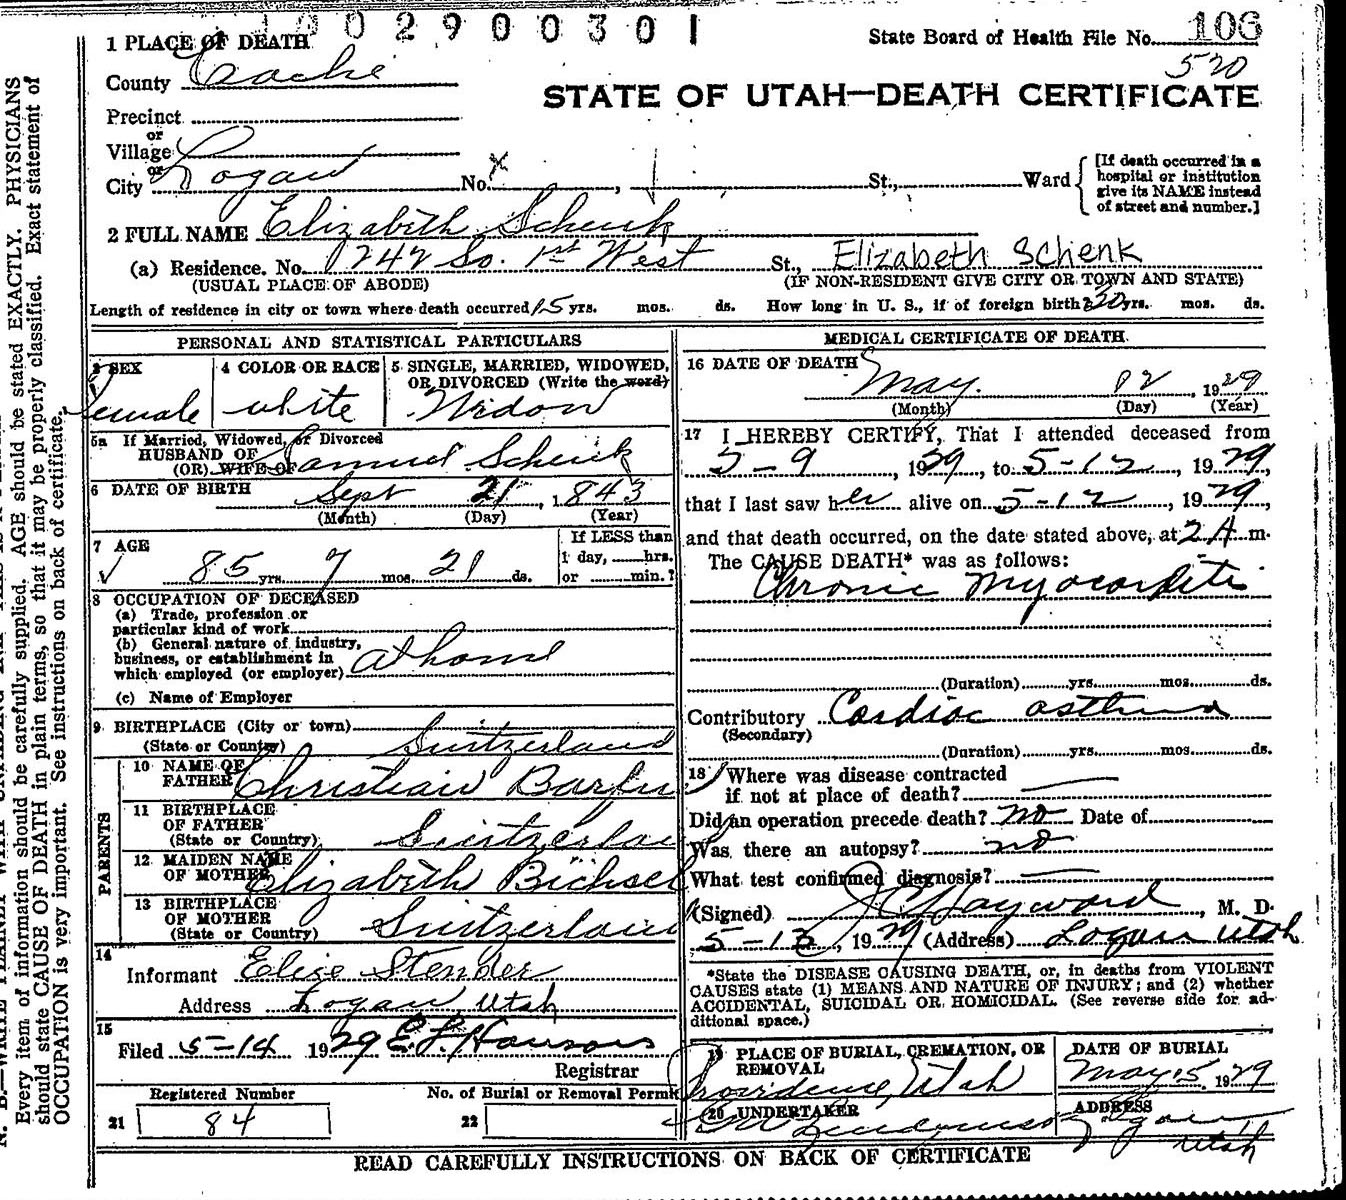 1002900301
State Board of Health File No. 106
520
1 PLACE OF DEATH
County Cache
STATE OF UTAH—DEATH CERTIFICATE
Precinct
or
Village
or
City Logan No. x , St., Ward
[If death occurred in a
hospital or institution
give its NAME instead
of street and number.]
2 FULL NAME Elizabeth Schenk
(a) Residence. No. 1242 So. 1st West St., Elizabeth Schenk
(USUAL PLACE OF ABODE) (IF NON-RESIDENT GIVE CITY OR TOWN AND STATE)
Length of residence in city or town where death occurred 15 yrs. mos. ds. How long in U. S., if of foreign birth? 30 yrs. mos. ds.
PERSONAL AND STATISTICAL PARTICULARS
3 SEX
Female
4 COLOR OR RACE
white
5 SINGLE, MARRIED, WIDOWED,
OR DIVORCED (Write the word)
Widow
5a If Married, Widowed, or Divorced
HUSBAND OF
(OR) WIFE OF Samuel Schenk
6 DATE OF BIRTH Sept 21, 1843
(Month) (Day) (Year)
7 AGE
85 yrs. 7 mos. 21 ds.
If LESS than
1 day, hrs.
or min.?
8 OCCUPATION OF DECEASED
(a) Trade, profession or
particular kind of work
(b) General nature of industry,
business, or establishment in
which employed (or employer) at home
(c) Name of Employer
9 BIRTHPLACE (City or town)
(State or Country) Switzerland
PARENTS
10 NAME OF
FATHER Christian Barfu
11 BIRTHPLACE
OF FATHER
(State or Country) Switzerland
12 MAIDEN NAME
OF MOTHER Elizabeth Bichsel
13 BIRTHPLACE
OF MOTHER
(State or Country) Switzerland
14
Informant Elise Stender
Address Logan, Utah
15
Filed 5-14 1929
Registrar
Registered Number
21 84
No. of Burial or Removal Permit
22
MEDICAL CERTIFICATE OF DEATH
16 DATE OF DEATH
May 12, 1929
(Month) (Day) (Year)
17 I HEREBY CERTIFY, That I attended deceased from
5-9, 1929, to 5-12, 1929,
that I last saw her alive on 5-12, 1929,
and that death occurred, on the date stated above, at 2 A m.
The CAUSE DEATH* was as follows:
Chronic Myocarditis
(Duration) yrs. mos. ds.
Contributory Cardiac asthma
(Secondary)
(Duration) yrs. mos. ds.
18 Where was disease contracted
if not at place of death?
Did an operation precede death? no Date of
Was there an autopsy? no
What test confirmed diagnosis?
(Signed) J C Hayward, M. D.
5-13, 1929 (Address) Logan Utah
*State the DISEASE CAUSING DEATH, or, in deaths from VIOLENT
CAUSES state (1) MEANS AND NATURE OF INJURY; and (2) whether
ACCIDENTAL, SUICIDAL OR HOMICIDAL. (See reverse side for ad-
ditional space.)
19 PLACE OF BURIAL, CREMATION, OR
REMOVAL
Providence, Utah
DATE OF BURIAL
May 15, 1929
20 UNDERTAKER
ADDRESS
Logan
Utah
READ CAREFULLY INSTRUCTIONS ON BACK OF CERTIFICATE
Every item of information should be carefully supplied. AGE should be stated EXACTLY. PHYSICIANS
should state CAUSE OF DEATH in plain terms, so that it may be properly classified. Exact statement of
OCCUPATION is very important. See instructions on back of certificate.